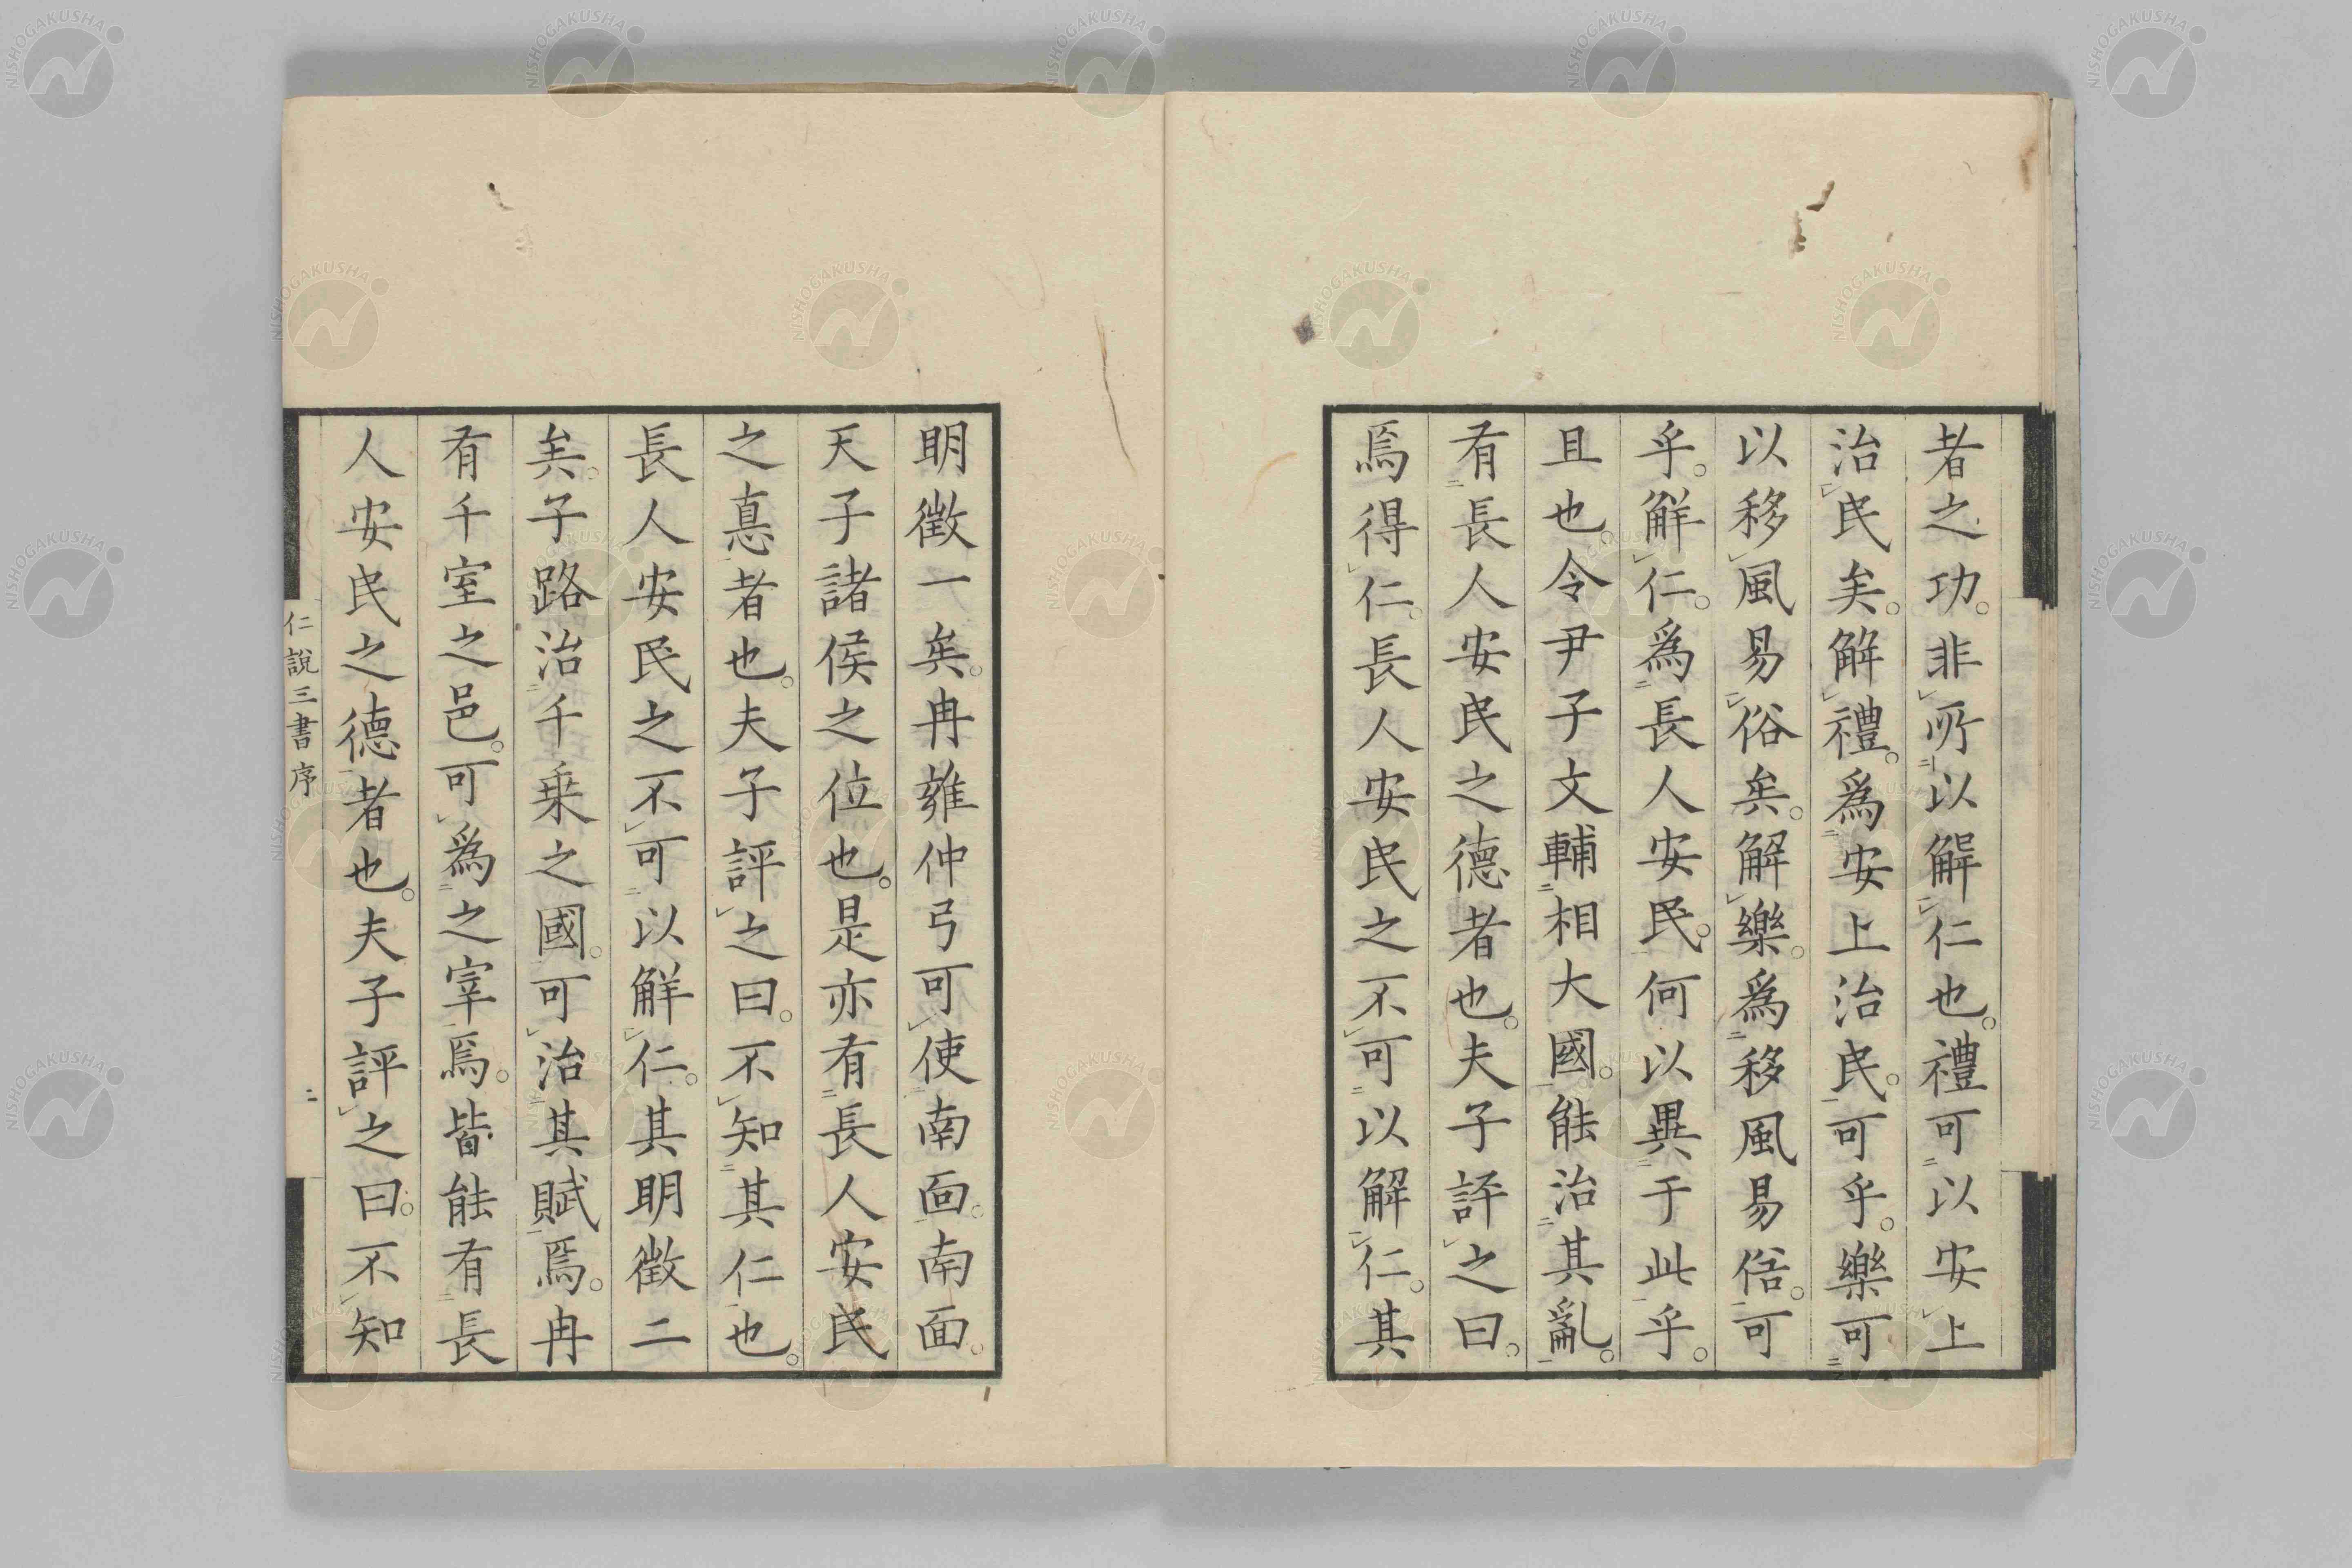 者之功。非所以解仁也。禮可以安上
治民矣。解禮。爲安上治民。可乎。樂可
以移風易俗矣。解樂。爲移風易俗。可
乎。解仁。爲長人安民。何以異于此乎。
且也。令尹子文輔相大國。能治其亂。
有長人安民之德者也。夫子評之曰。
焉得仁。長人安民之不可以解仁。其
明徵一矣。冉雍仲弓可使南面。南面。
天子諸侯之位也。是亦有長人安民
之悳者也。夫子評之曰。不知其仁也。
長人安民之不可以解仁。其明徵二
矣。子路治千乗之國。可治其賦焉。冉
有千室之邑。可爲之宰焉。皆能有長
人安民之德者也。夫子評之曰。不知
仁說三書序
二
NISHOGAKUSHA